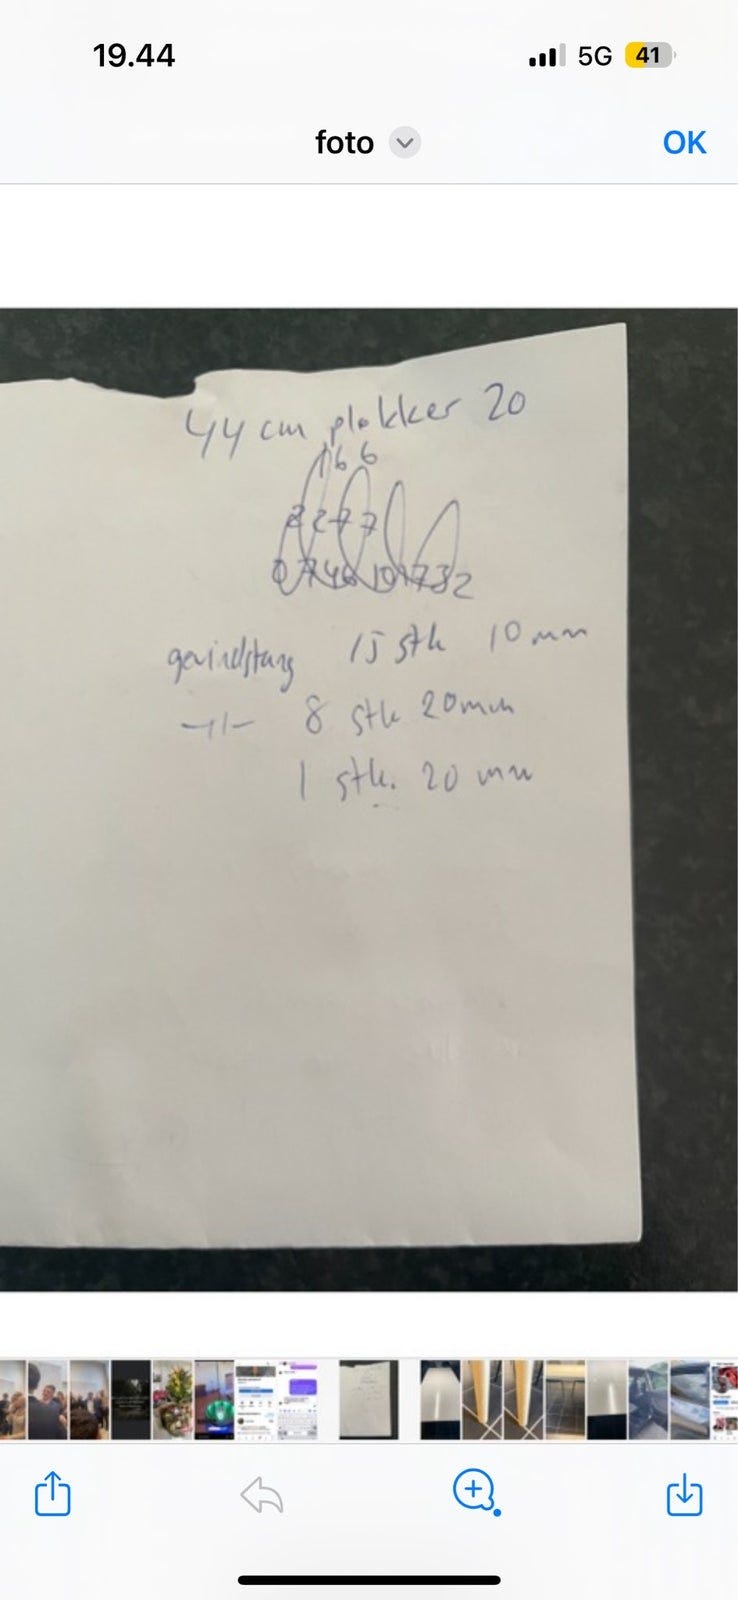 19.44 5G 41
foto OK
44 cm plokker 20
166
2277
gevindstang 15 stk 10 mm
-11- 8 stk 20mm
1 stk. 20 mm